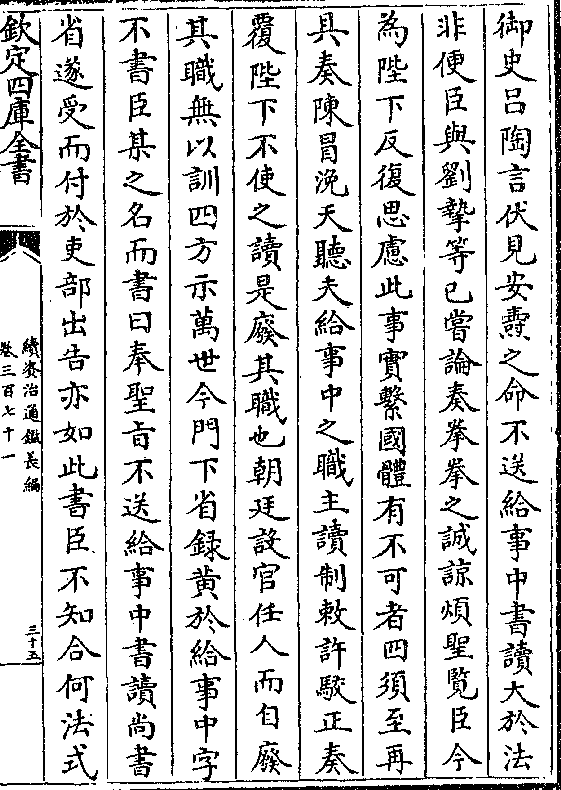 御史呂陶言伏見安燾之命不送給事中書讀大於法
非便臣與劉摯等已嘗論奏拳拳之誠諒煩聖覧臣今
為陛下反復思慮此事實繫國體有不可者四須至再
具奏陳冒浼天聽夫給事中之職主讀制敕許駮正奏
覆陛下不使之讀是廢其職也朝廷設官任人而自廢
其職無以訓四方示萬世今門下省録黄於給事中字
不書臣某之名而書曰奉聖旨不送給事中書讀尚書
省遂受而付於吏部出告亦如此書臣不知合何法式
欽定四庫全書
續資治通鑑長編
卷三百七十一
三十五